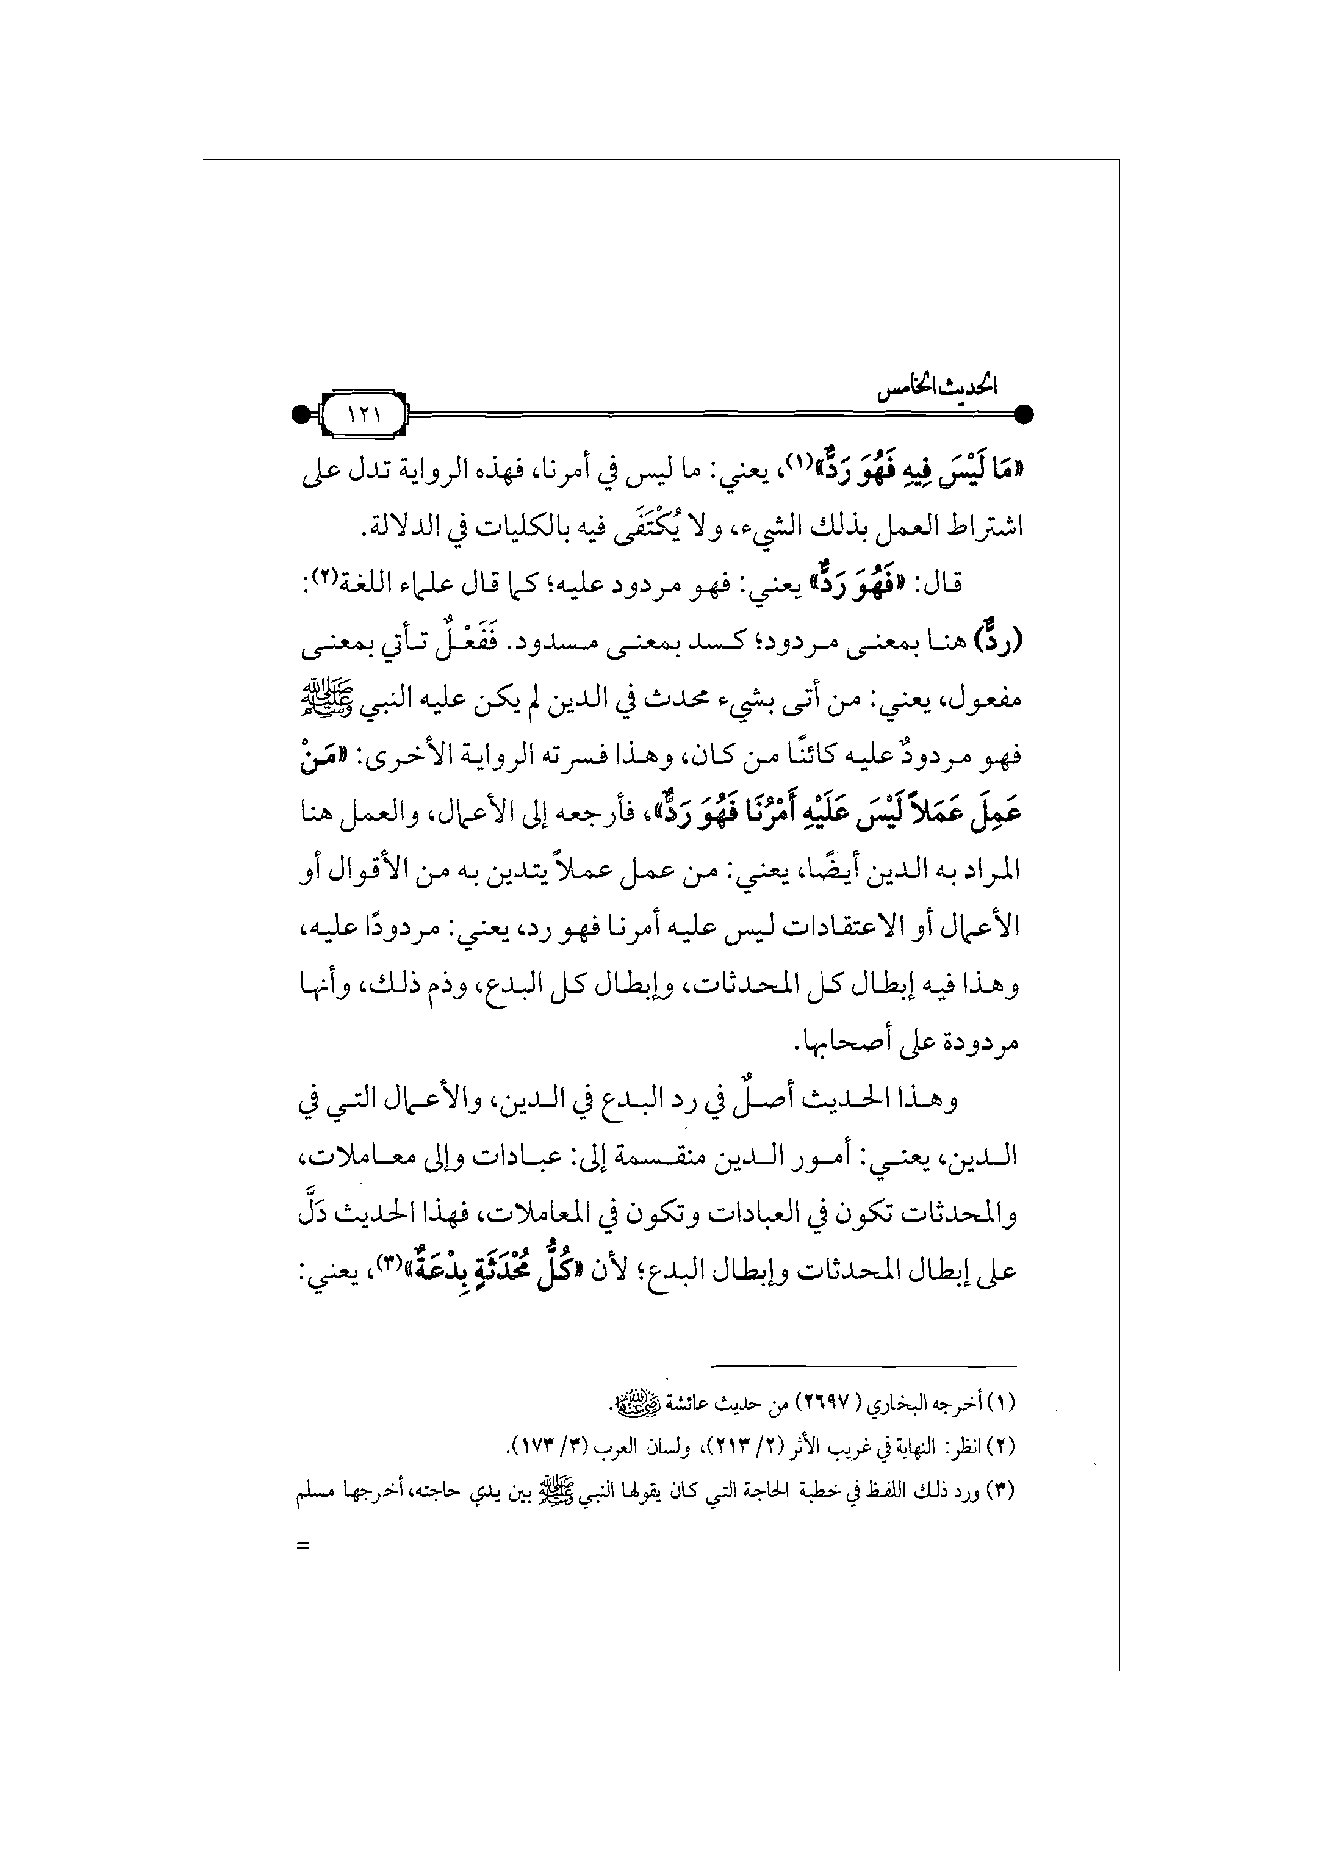 الحديث الخامس
١٢١
«مَا لَيْسَ فِيهِ فَهُوَ رَدٌّ»(١)، يعني: ما ليس في أمرنا، فهذه الرواية تدل على
اشتراط العمل بذلك الشيء، ولا يُكْتَفَى فيه بالكليات في الدلالة.
قال: «فَهُوَ رَدٌّ» يعني: فهو مردود عليه؛ كما قال علماء اللغة(٢):
(ردٌّ) هنا بمعنى مردود؛ كسد بمعنى مسدود. فَفَعْلٌ تأتي بمعنى
مفعول، يعني: من أتى بشيء محدث في الدين لم يكن عليه النبي ﷺ
فهو مردودٌ عليه كائنًا من كان، وهذا فسرته الرواية الأخرى: «مَنْ
عَمِلَ عَمَلاً لَيْسَ عَلَيْهِ أَمْرُنَا فَهُوَ رَدٌّ»، فأرجعه إلى الأعمال، والعمل هنا
المراد به الدين أيضًا، يعني: من عمل عملاً يتدين به من الأقوال أو
الأعمال أو الاعتقادات ليس عليه أمرنا فهو رد، يعني: مردودًا عليه،
وهذا فيه إبطال كل المحدثات، وإبطال كل البدع، وذم ذلك، وأنها
مردودة على أصحابها.
وهذا الحديث أصلٌ في رد البدع في الدين، والأعمال التي في
الدين، يعني: أمور الدين منقسمة إلى: عبادات وإلى معاملات،
والمحدثات تكون في العبادات وتكون في المعاملات، فهذا الحديث دَلَّ
على إبطال المحدثات وإبطال البدع؛ لأن «كُلُّ مُحْدَثَةٍ بِدْعَةٌ»(٣)، يعني:
(١) أخرجه البخاري (٢٦٩٧) من حديث عائشة رضي الله عنها.
(٢) انظر: النهاية في غريب الأثر (٢/ ٢١٣)، ولسان العرب (٣/ ١٧٣).
(٣) ورد ذلك اللفظ في خطبة الحاجة التي كان يقولها النبي ﷺ بين يدي حاجته، أخرجها مسلم
=